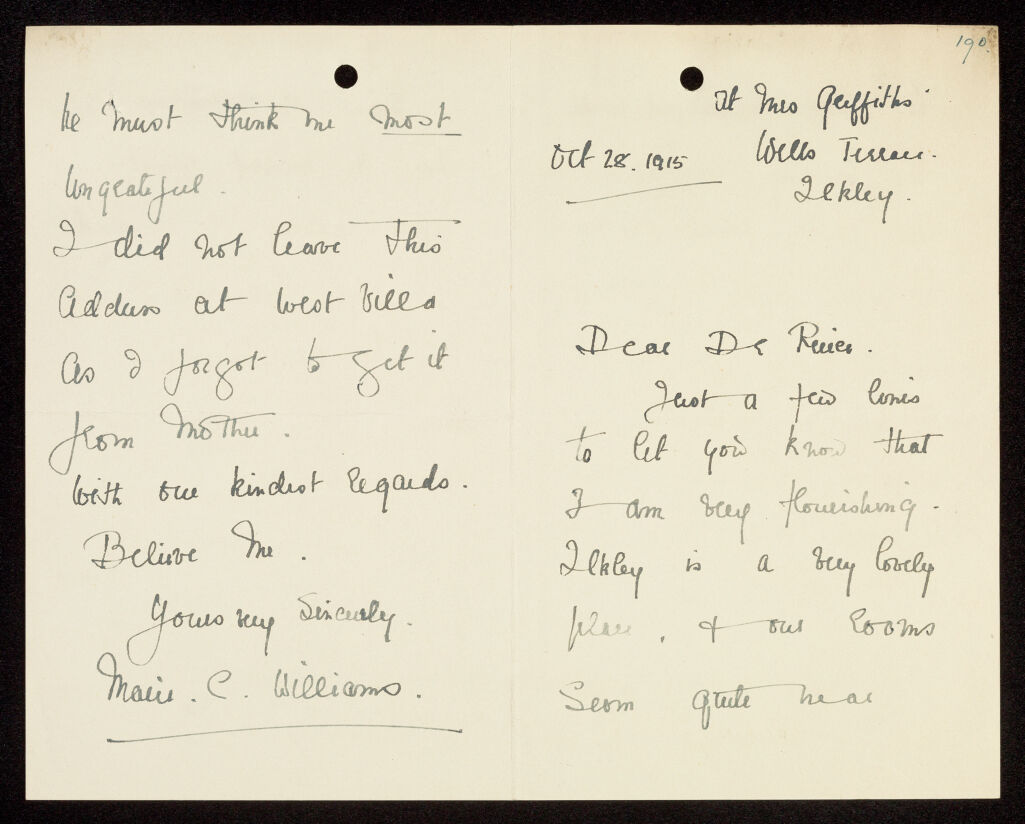 190.
At Mrs Griffiths'
Wells Terrace.
Ilkley.
Oct 28. 1915
Dear Dr
Just a few lines
to let you know that
I am very flourishing.
Ilkley is a very lovely
place, & our rooms
Seem quite near
he must think me most
Ungrateful.
I did not leave this
Address at West Villa
As I forgot to get it
from Mother.
With our kindest regards.
Believe Me.
Yours very Sincerely.
Marie. C. Williams.